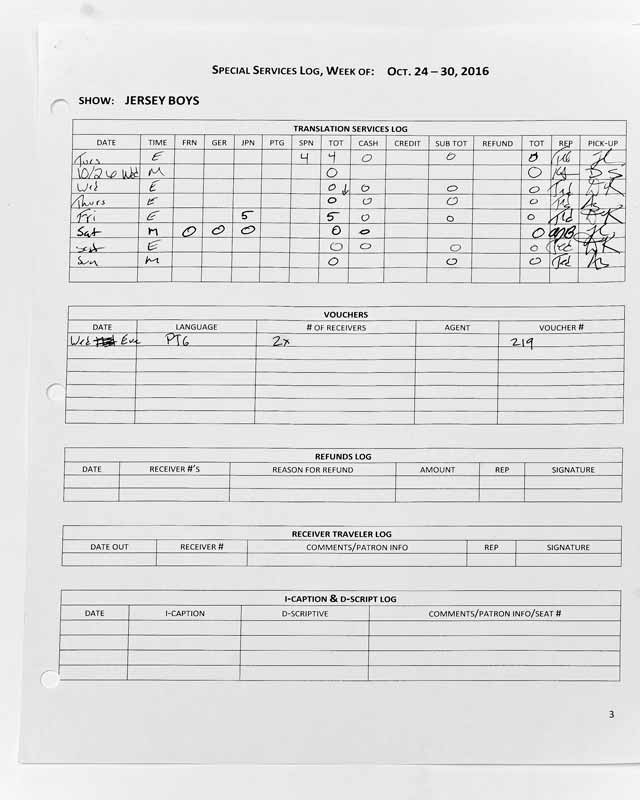 SPECIAL SERVICES LOG, WEEK OF: OCT. 24 – 30, 2016
SHOW: JERSEY BOYS
TRANSLATION SERVICES LOG
DATE TIME FRN GER JPN PTG SPN TOT CASH CREDIT SUB TOT REFUND TOT REP PICK-UP
Tues E 4 4 0 0 0
10/26 Wed M 0 0 DS
Wed E 0 0 0 0
Thurs E 0 0 0 0
Fri E 5 5 0 0 0
Sat M 0 0 0 0 0 0
Sat E 0 0 0 0
Sun M 0 0 0
VOUCHERS
DATE LANGUAGE # OF RECEIVERS AGENT VOUCHER #
Wed Eve PTG 2x 219
REFUNDS LOG
DATE RECEIVER #'S REASON FOR REFUND AMOUNT REP SIGNATURE
RECEIVER TRAVELER LOG
DATE OUT RECEIVER # COMMENTS/PATRON INFO REP SIGNATURE
I-CAPTION & D-SCRIPT LOG
DATE I-CAPTION D-SCRIPTIVE COMMENTS/PATRON INFO/SEAT #
3